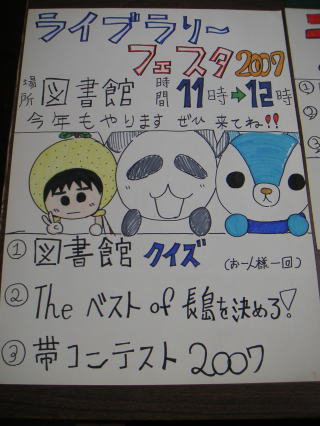 ライブラリー
フェスタ2007
場所 図書館 時間 11時→12時
今年もやります ぜひ 来てね!!
① 図書館 クイズ (お一人様一回)
② The ベスト of 長島を決めろ!
③ 帯コンテスト 2007